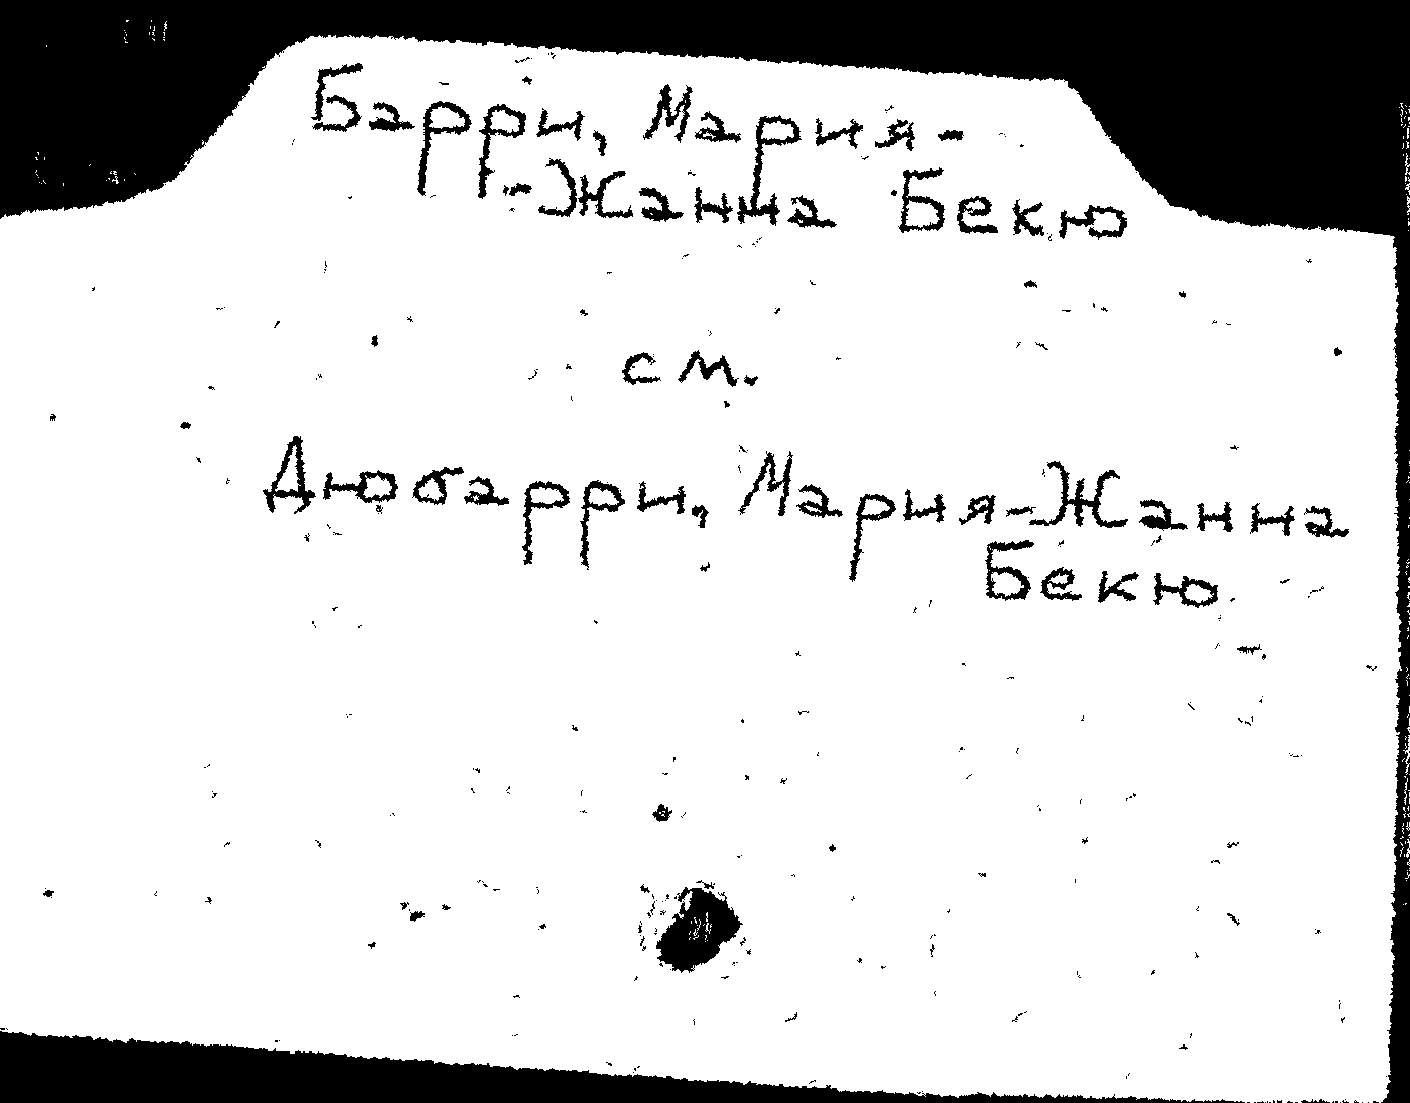 Барри, Мария-
-Жанна Бекю
см.
Дюбарри, Мария-Жанна
Бекю